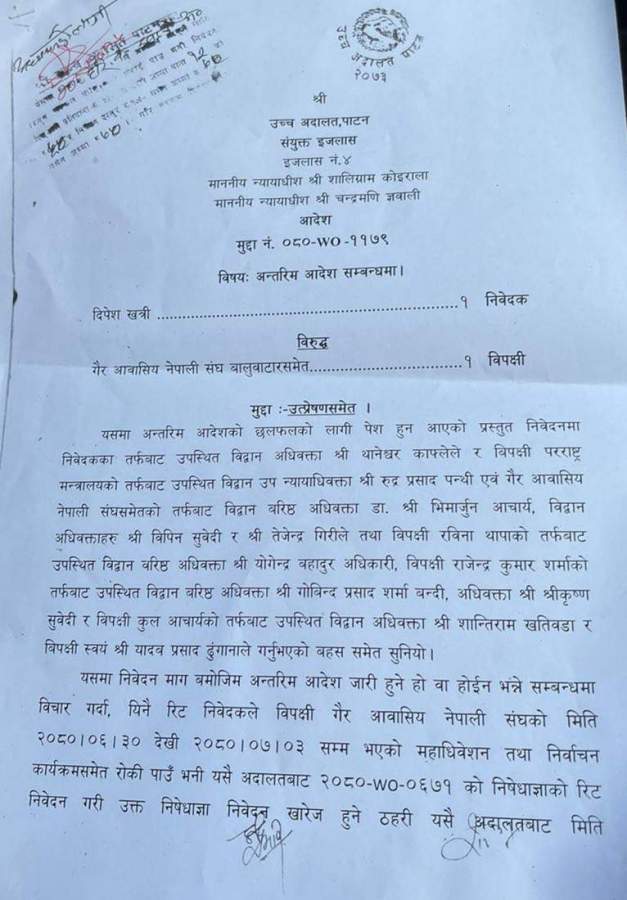 उच्च अदालत पाटन
२०७३
श्री
उच्च अदालत,पाटन
संयुक्त इजलास
इजलास नं.४
माननीय न्यायाधीश श्री शालिग्राम कोइराला
माननीय न्यायाधीश श्री चन्द्रमणि ज्ञवाली
आदेश
मुद्दा नं. ०८०-WO-११७९
विषयः अन्तरिम आदेश सम्बन्धमा।
दिपेश खत्री ........................................................१ निवेदक
विरुद्ध
गैर आवासिय नेपाली संघ बालुवाटारसमेत..................................१ विपक्षी
मुद्दा :-उत्प्रेषणसमेत ।
यसमा अन्तरिम आदेशको छलफलको लागी पेश हुन आएको प्रस्तुत निवेदनमा
निवेदकका तर्फबाट उपस्थित विद्वान अधिवक्ता श्री थानेश्वर काफ्लेले र विपक्षी परराष्ट्र
मन्त्रालयको तर्फबाट उपस्थित विद्वान उप न्यायाधिवक्ता श्री रुद्र प्रसाद पन्थी एवं गैर आवासिय
नेपाली संघसमेतको तर्फबाट विद्वान वरिष्ठ अधिवक्ता डा. श्री भिमार्जुन आचार्य, विद्वान
अधिवक्ताहरु श्री विपिन सुवेदी र श्री तेजेन्द्र गिरीले तथा विपक्षी रविना थापाको तर्फबाट
उपस्थित विद्वान वरिष्ठ अधिवक्ता श्री योगेन्द्र बहादुर अधिकारी, विपक्षी राजेन्द्र कुमार शर्माको
तर्फबाट उपस्थित विद्वान वरिष्ठ अधिवक्ता श्री गोबिन्द प्रसाद शर्मा बन्दी, अधिवक्ता श्री श्रीकृष्ण
सुवेदी र विपक्षी कुल आचार्यको तर्फबाट उपस्थित विद्वान अधिवक्ता श्री शान्तिराम खतिवडा र
विपक्षी स्वयं श्री यादव प्रसाद ढुंगानाले गर्नुभएको बहस समेत सुनियो।
यसमा निवेदन माग बमोजिम अन्तरिम आदेश जारी हुने हो वा होईन भंन्ने सम्बन्धमा
विचार गर्दा, यिनै रिट निवेदकले विपक्षी गैर आवासिय नेपाली संघको मिति
२०८०।०६।३० देखी २०८०।०७।०३ सम्म भएको महाधिवेशन तथा निर्वाचन
कार्यक्रमसमेत रोकी पाउँ भनी यसै अदालतबाट २०८०-WO-०६७१ को निषेधाज्ञाको रिट
निवेदन गरी उक्त निषेधाज्ञा निवेदन खारेज हुने ठहरी यसै अदालतबाट मिति